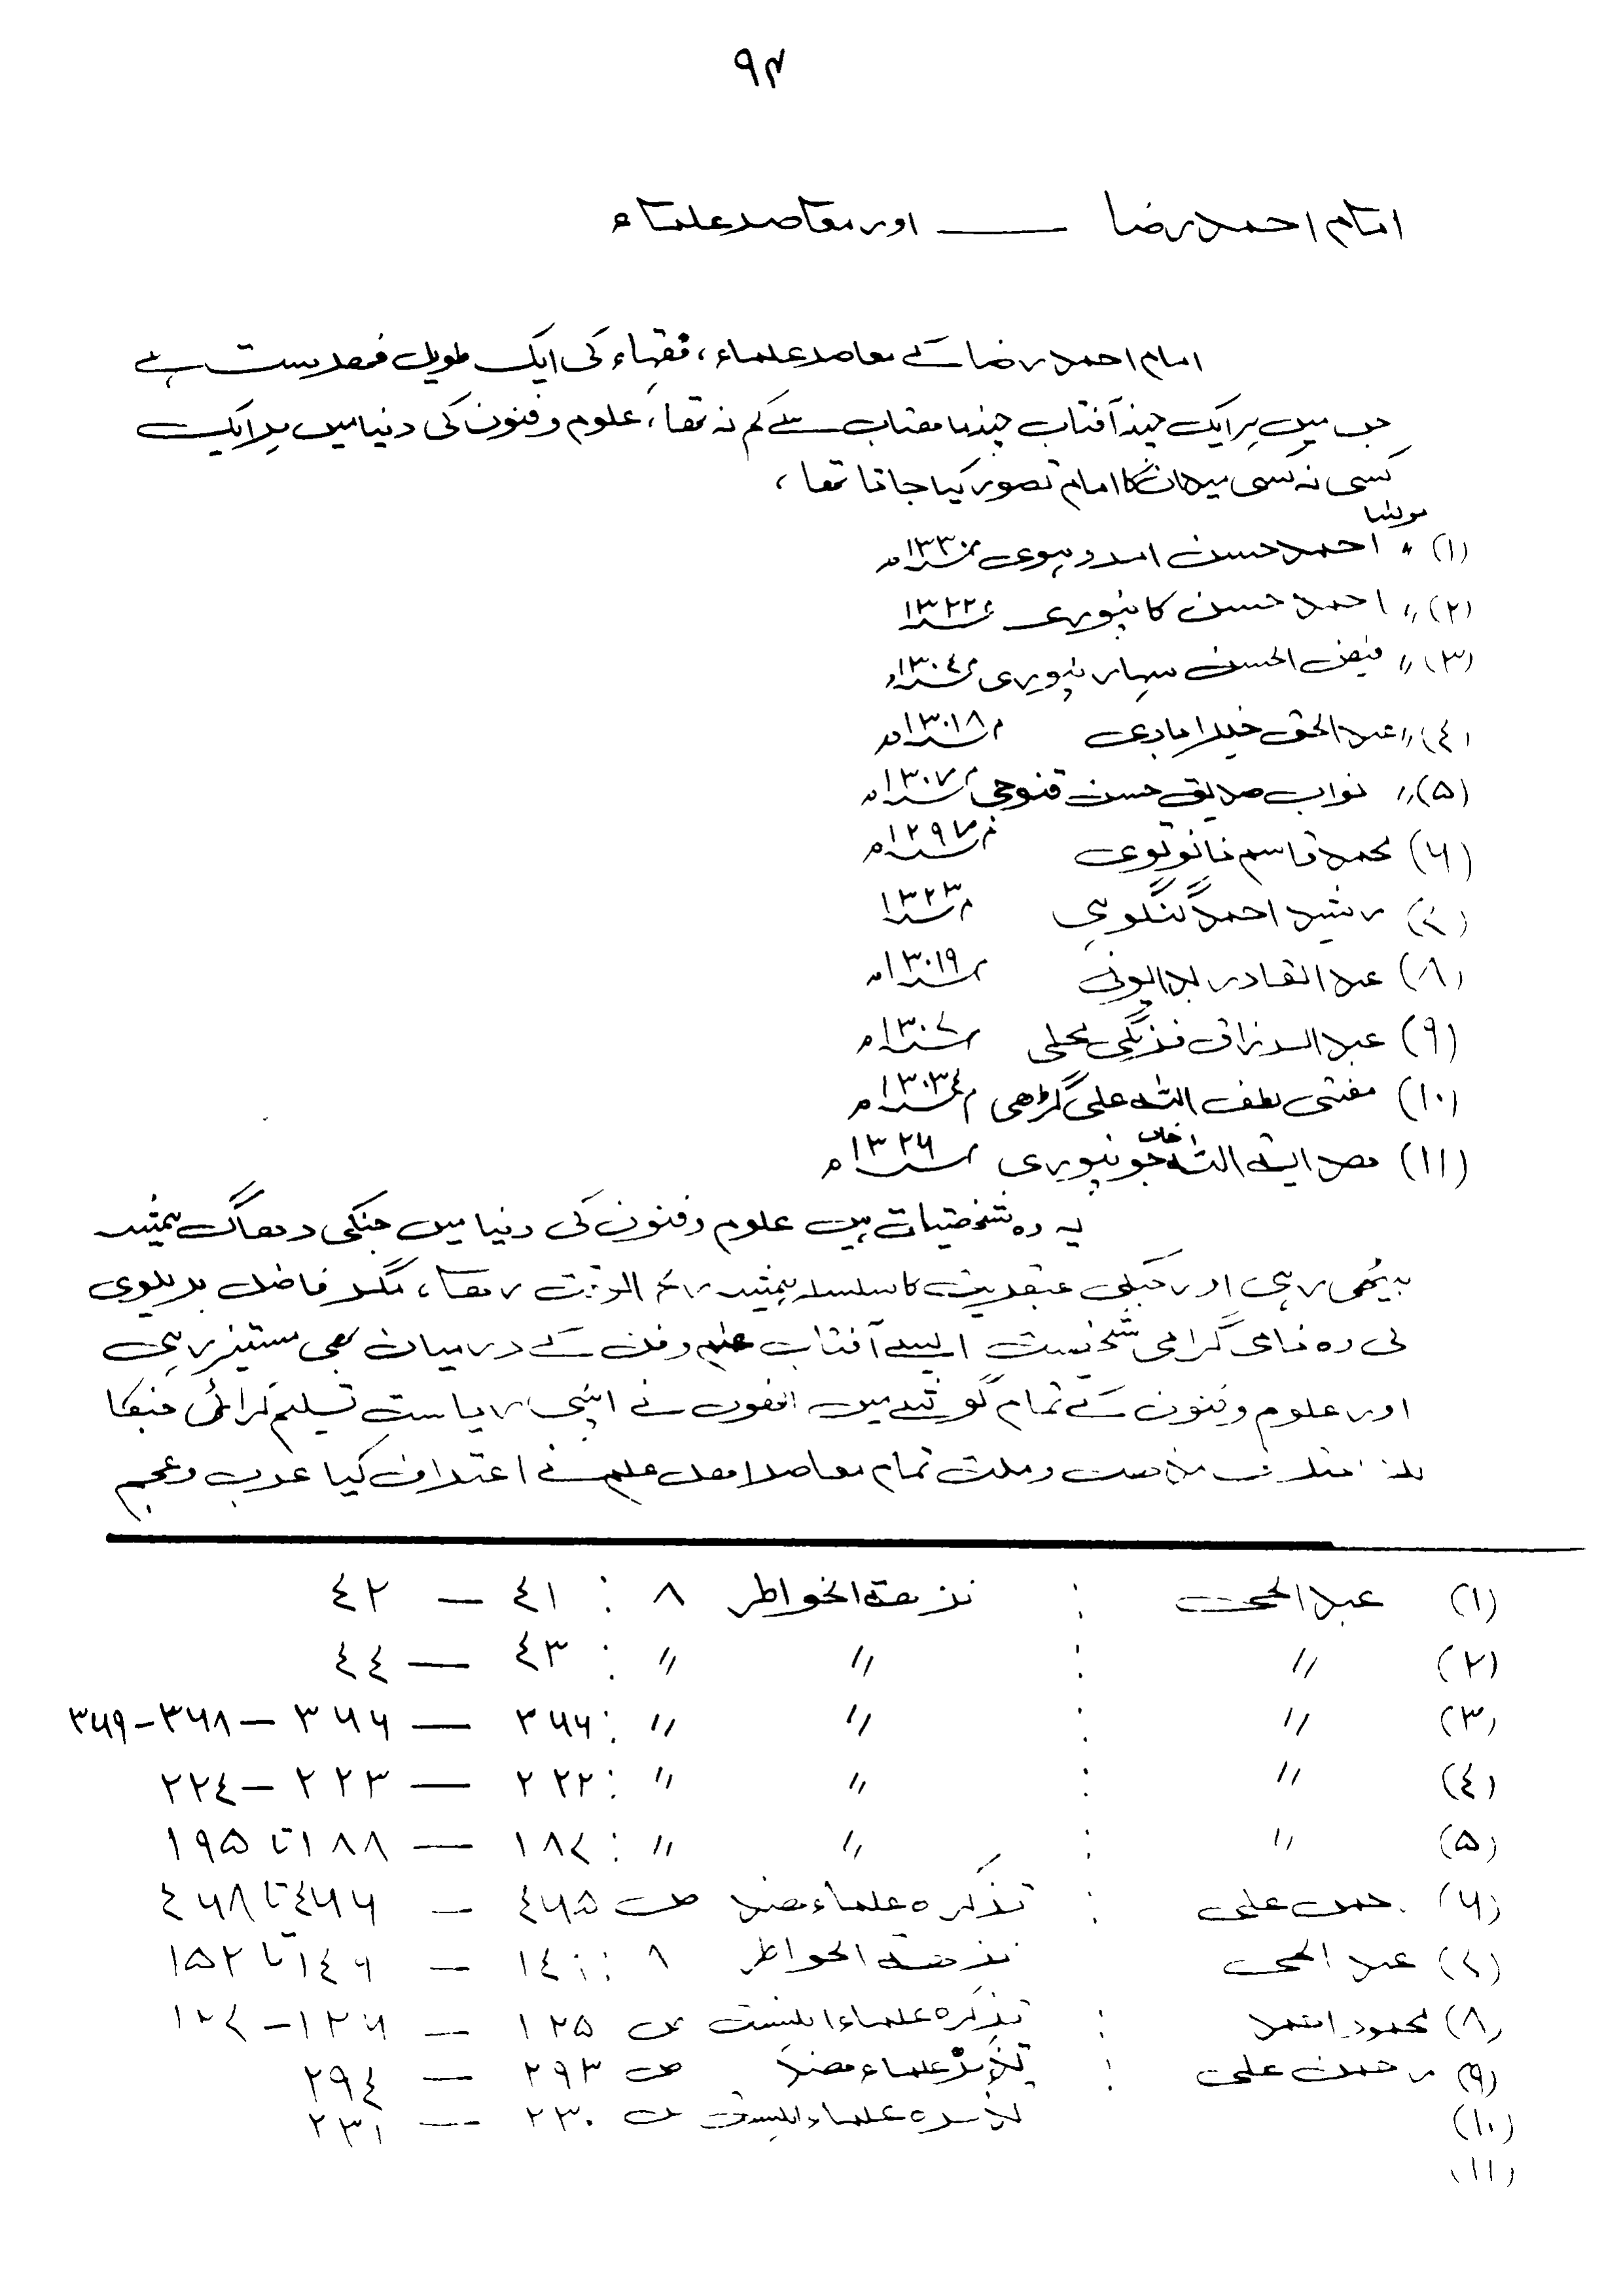 ۹۴
امام احمد رضا ـــــ اور معاصر علماء
امام احمد رضا کے معاصر علماء، فقہاء کی ایک طویل فہرست ہے
جس میں ہر ایک چند آفتاب چند ماہتاب سے کم نہ تھا، علوم و فنون کی دنیا میں ہر ایک
کسی نہ کسی میدان کا امام تصور کیا جاتا تھا،
(۱) مولانا احمد حسن امروہوی م ۱۳۳۰ھ
(۲) 〃 احمد حسن کانپوری م ۱۳۲۲
(۳) 〃 فیض الحسن سہارنپوری م ۱۳۰٤ھ
(٤) 〃 عبدالحق خیرابادی م ۱۳۰۱۸ھ
(۵) 〃 نواب صدیق حسن قنوجی م ۱۳۰۷ھ
(۶) محمد قاسم نانوتوی م ۱۲۹۷ھ
(۷) رشید احمد گنگوہی م ۱۳۲۳
(۸) عبد القادر بدایونی م ۱۳۰۱۹ھ
(۹) عبد الرزاق فرنگی محلی م ۱۳۰۷ھ
(۱۰) مفتی لطف اللہ علی گڑھی م ۱۳۰۳٤ھ
(۱۱) ھدایت اللہ خاں جونپوری م ۱۳۲۶ھ
یہ وہ شخصتیات ہیں علوم و فنون کی دنیا میں جنکی دھاگ ہمیشہ
بیٹھی رہی اور جنکی عبقریت کا سلسلہ ہمیشہ رائج الوقت رھا، مگر فاضل بریلوی
کی وہ نامی گرامی شخصیت ایسے آفتاب علم و فن کے درمیان بھی مستیز رہی
اور علوم و فنون کے تمام گوشے میں انھوں نے اپنی ریاست تسلیم کرائی جنکا
مذھب و ملت تمام معاصر اھل علم نے اعتراف کیا عرب و عجم
(۱) عبد الحی : نزھة الخواطر ۸ : ٤۱ — ٤۲
(۲) 〃 : 〃 〃 : ٤۳ — ٤٤
(۳) 〃 : 〃 〃 : ۳۶۶ — ۳۶۶ — ۳۶۸-۳۶۹
(٤) 〃 : 〃 〃 : ۲۲۲ — ۲۲۳ — ۲۲٤
(۵) 〃 : 〃 〃 : ۱۸۷ — ۱۸۸ تا ۱۹۵
(۶) رحمن علی : تذکرہ علماء ھند ص ٤۶۵ — ٤۶۶ تا ٤۶۸
(۷) عبد الحی نزھة الخواطر ۸ : ۱٤ — ۱٤۹ تا ۱۵۲
(۸) محمود احمد : تذکرہ علماء اہلسنت ص ۱۲۵ — ۱۲۶ - ۱۲۷
(۹) رحمن علی : تذکرہ علماء ھند ص ۲۹۳ — ۲۹٤
(۱۰) تذکرہ علماء اہلسنت ص ۲۳۰ — ۲۳۱
(۱۱)